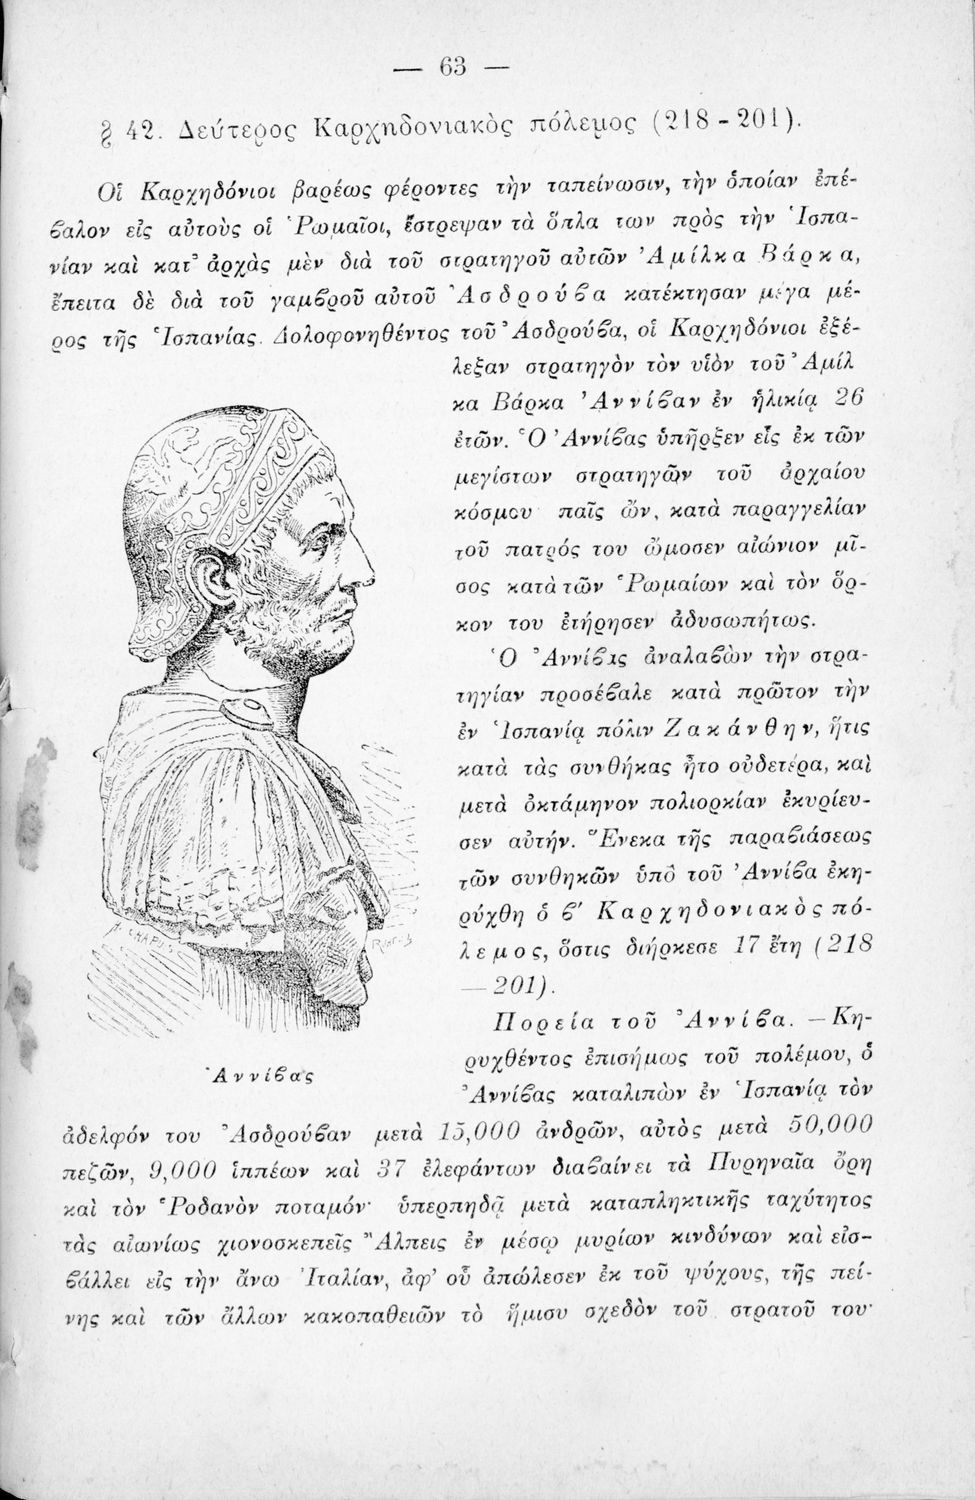 — 63 —
§ 42. Δεύτερος Καρχηδονιακὸς πόλεμος (218-201).
Οἱ Καρχηδόνιοι βαρέως φέροντες τὴν ταπείνωσιν, τὴν ὁποίαν ἐπέ-
ϐαλον εἰς αὐτοὺς οἱ Ῥωμαῖοι, ἔστρεψαν τὰ ὅπλα των πρὸς τὴν Ἱσπα-
νίαν καὶ κατ' ἀρχὰς μὲν διὰ τοῦ στρατηγοῦ αὐτῶν Ἀμίλκα Βάρκα,
ἔπειτα δὲ διὰ τοῦ γαμϐροῦ αὐτοῦ Ἀσδρούϐα κατέκτησαν μέγα μέ-
ρος τῆς Ἱσπανίας. Δολοφονηθέντος τοῦ Ἀσδρούϐα, οἱ Καρχηδόνιοι ἐξέ-
λεξαν στρατηγὸν τὸν υἱὸν τοῦ Ἀμίλ
κα Βάρκα Ἀννίϐαν ἐν ἡλικίᾳ 26
ἐτῶν. Ὁ Ἀννίϐας ὑπῆρξεν εἷς ἐκ τῶν
μεγίστων στρατηγῶν τοῦ ἀρχαίου
κόσμου παῖς ὤν, κατὰ παραγγελίαν
τοῦ πατρός του ὤμοσεν αἰώνιον μῖ-
σος κατὰ τῶν Ῥωμαίων καὶ τὸν ὅρ-
κον του ἐτήρησεν ἀδυσωπήτως.
Ὁ Ἀννίϐας ἀναλαϐὼν τὴν στρα-
τηγίαν προσέϐαλε κατὰ πρῶτον τὴν
ἐν Ἱσπανίᾳ πόλιν Ζακάνθην, ἥτις
κατὰ τὰς συνθήκας ἦτο οὐδετέρα, καὶ
μετὰ ὀκτάμηνον πολιορκίαν ἐκυρίευ-
σεν αὐτήν. Ἕνεκα τῆς παραϐιάσεως
τῶν συνθηκῶν ὑπὸ τοῦ Ἀννίϐα ἐκη-
ρύχθη ὁ ϐ' Καρχηδονιακὸς πό-
λεμος, ὅστις διήρκεσε 17 ἔτη (218
— 201).
Πορεία τοῦ Ἀννίϐα. — Κη-
ρυχθέντος ἐπισήμως τοῦ πολέμου, ὁ
Ἀννίϐας καταλιπὼν ἐν Ἱσπανίᾳ τὸν
Ἀννίϐας
ἀδελφόν του Ἀσδρούϐαν μετὰ 15,000 ἀνδρῶν, αὐτὸς μετὰ 50,000
πεζῶν, 9,000 ἱππέων καὶ 37 ἐλεφάντων διαϐαίνει τὰ Πυρηναῖα ὄρη
καὶ τὸν Ῥοδανὸν ποταμόν· ὑπερπηδᾷ μετὰ καταπληκτικῆς ταχύτητος
τὰς αἰωνίως χιονοσκεπεῖς Ἄλπεις ἐν μέσῳ μυρίων κινδύνων καὶ εἰσ-
ϐάλλει εἰς τὴν ἄνω Ἰταλίαν, ἀφ' οὗ ἀπώλεσεν ἐκ τοῦ ψύχους, τῆς πεί-
νης καὶ τῶν ἄλλων κακοπαθειῶν τὸ ἥμισυ σχεδὸν τοῦ στρατοῦ του·